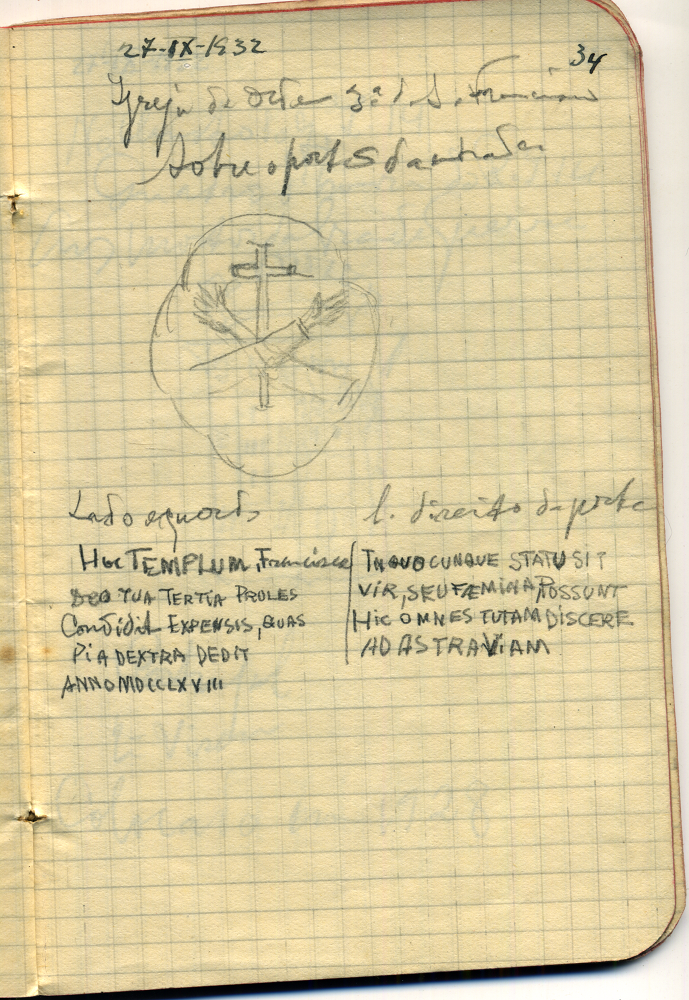 27-IX-1932
34
Igreja da Ordem 3ª d. S. Francisco
Sobre a porta da entrada
Lado esquerdo
Hoc TEMPLUM, Francisce
DEO TUA TERTIA PROLES
Condidit EXPENSIS, QUAS
PIA DEXTRA DEDIT
ANNO MDCCLXVIII
l. direito da porta
INQUOCUNQUE STATU SIT
VIR, SEU FÆMINA, POSSUNT
HIC OMNES TUTAM DISCERE
AD ASTRA VIAM